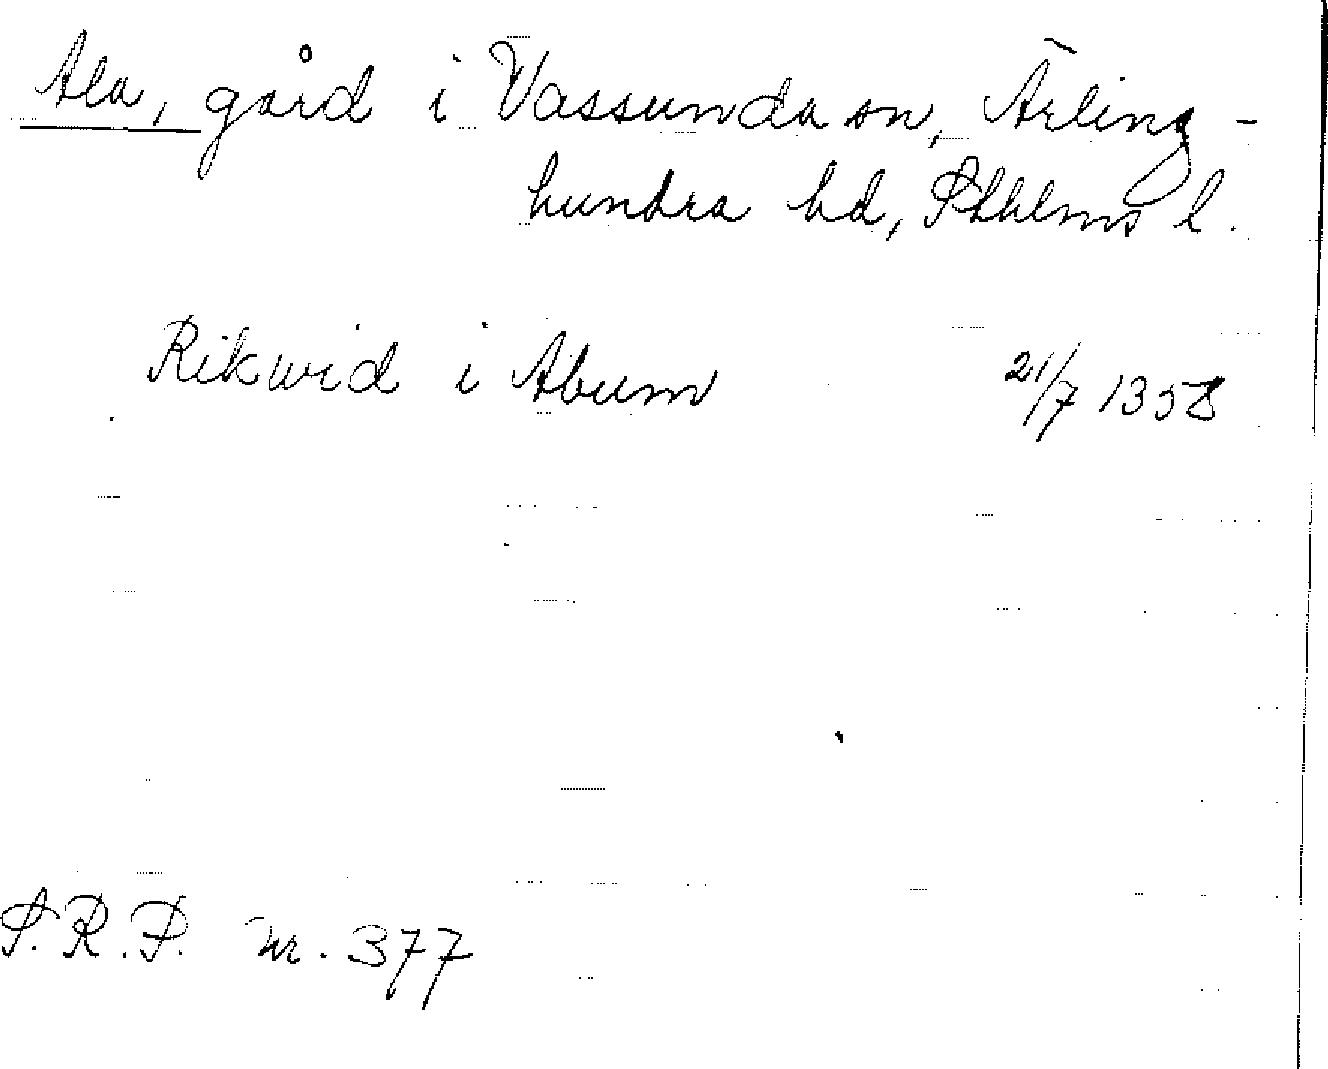 Ala, gård i Vassunda sn, Ärling-
hundra hd, Sthlms l.
Rikwid i Abum 21/7 1358
S.R.P. nr. 377